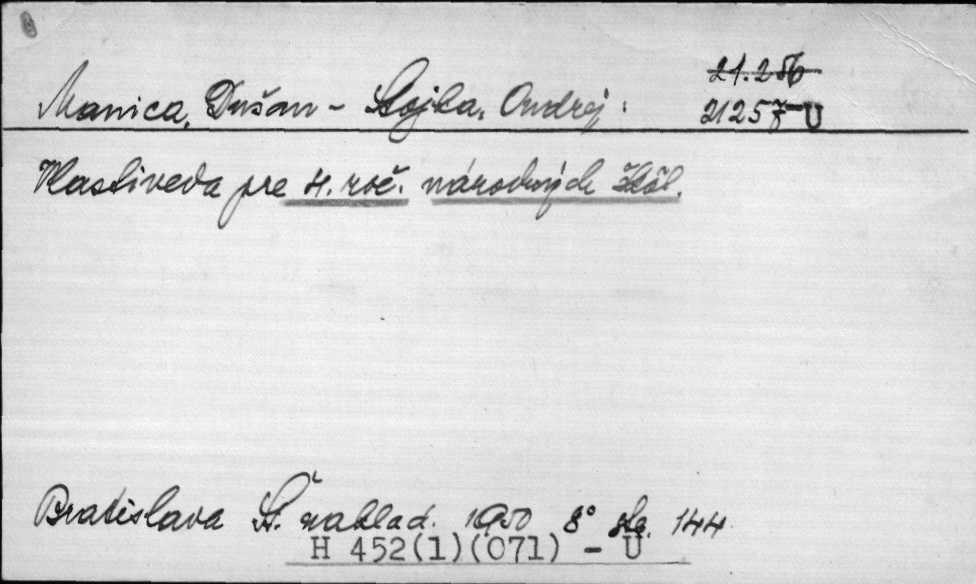 21.256
Manica, Dušan - Stojka, Ondrej:
21257-U
Vlastiveda pre 4. roč. národných škôl.
Bratislava Št. naklad. 1950 8° 144
H 452(1)(071) - U